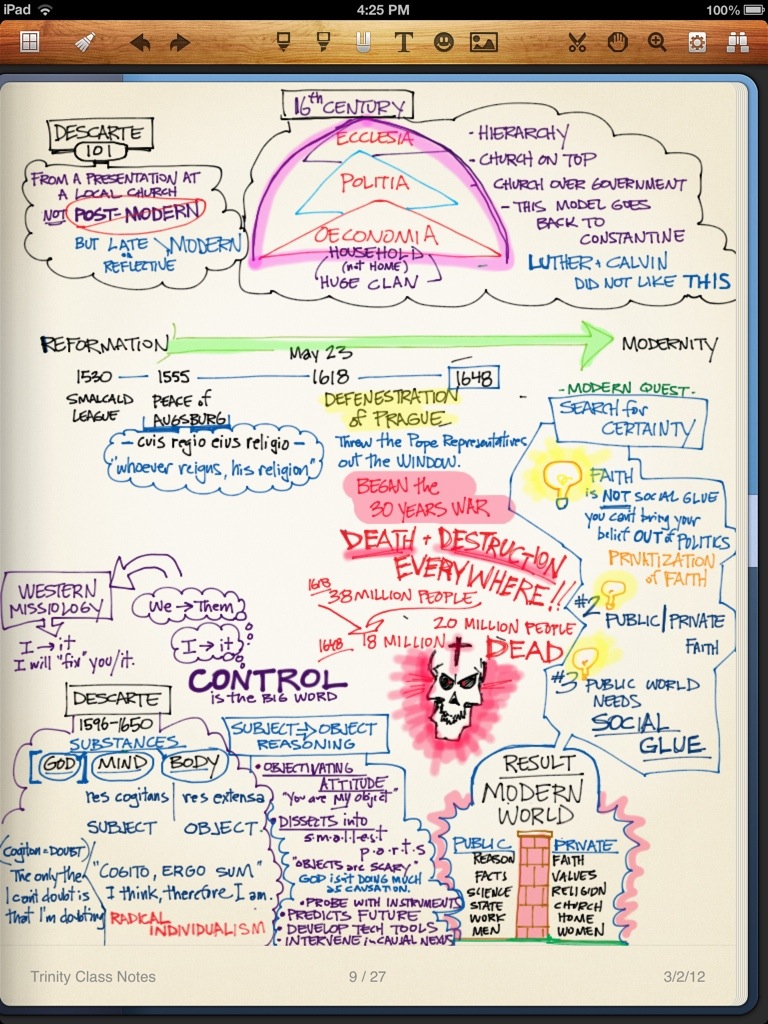 iPad
4:25 PM
100%
T
DESCARTE
101
FROM A PRESENTATION AT
A LOCAL CHURCH
NOT POST-MODERN
BUT LATE MODERN
or
REFLECTIVE
16th CENTURY
ECCLESIA
POLITIA
OECONOMIA
HOUSEHOLD
(not HOME)
HUGE CLAN
- HIERARCHY
- CHURCH ON TOP
CHURCH OVER GOVERNMENT
- THIS MODEL GOES
BACK TO
CONSTANTINE
LUTHER + CALVIN
DID NOT LIKE THIS
REFORMATION
MODERNITY
May 23
1530 — 1555 — 1618 — 1648
SMALCALD
LEAGUE
PEACE of
AUGSBURG
- cuis regio eius religio -
"whoever reigns, his religion"
DEFENESTRATION
of PRAGUE
Throw the Pope Representatives
out the WINDOW.
BEGAN the
30 YEARS WAR
DEATH + DESTRUCTION
EVERYWHERE!!
1618
38 MILLION PEOPLE
20 MILLION PEOPLE
1648 18 MILLION
DEAD
- MODERN QUEST -
SEARCH for
CERTAINTY
FAITH
is NOT SOCIAL GLUE
you can't bring your
belief OUT of POLITICS
PRIVATIZATION
of FAITH
#2
PUBLIC/PRIVATE
FAITH
#3 PUBLIC WORLD
NEEDS
SOCIAL
GLUE
WESTERN
MISSIOLOGY
I → it
I will "fix" you/it.
We → Them
I → it
CONTROL
is the BIG WORD
DESCARTE
1596-1650
SUBSTANCES
[GOD] MIND BODY
res cogitans | res extensa
SUBJECT OBJECT
Cogiton = DOUBT
The only the
I can't doubt is
that I'm doubting
"COGITO, ERGO SUM"
I think, therefore I am.
RADICAL
INDIVIDUALISM
SUBJECT → OBJECT
REASONING
• OBJECTIVATING
ATTITUDE
"You are MY OBJECT"
• DISSECTS into
smallest
parts
"OBJECTS are SCARY"
GOD isn't DOING MUCH
as CAUSATION.
• PROBE WITH INSTRUMENTS
• PREDICTS FUTURE
• DEVELOP TECH TOOLS
• INTERVENE in CAUSAL NEXUS
RESULT
MODERN
WORLD
PUBLIC
REASON
FACTS
SCIENCE
STATE
WORK
MEN
PRIVATE
FAITH
VALUES
RELIGION
CHURCH
HOME
WOMEN
Trinity Class Notes
9 / 27
3/2/12